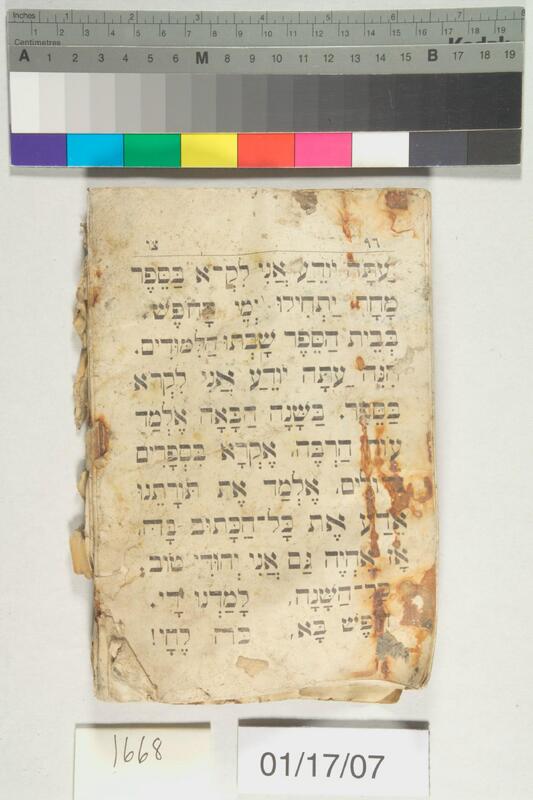 Inches 1 2 3 4 5 6 7 8
Centimetres 1 2 3 4 5 6 7 8 9 10 11 12 13 14 15 16 17 18 19
A 1 2 3 4 5 6 M 8 9 10 11 12 13 14 15 B 17 18 19
עַתָּה יוֹדֵעַ אֲנִי לִקְרֹא בַּסֵּפֶר
מָחָר יַתְחִילוּ יְמֵי הַחֹפֶשׁ.
בְּבֵית הַסֵּפֶר שָׁבְתוּ הַלִּמּוּדִים.
הִנֵּה עַתָּה יוֹדֵעַ אֲנִי לִקְרֹא
בַּסֵּפֶר. בַּשָּׁנָה הַבָּאָה אֶלְמַד
עוֹד הַרְבֵּה. אֶקְרָא בִּסְפָרִים
אֶלְמַד אֶת תּוֹרָתֵנוּ
אֵדַע אֶת כָּל־הַכָּתוּב בָּהּ.
אָז אֶהְיֶה גַּם אֲנִי יְהוּדִי טוֹב.
הַשָּׁנָה, לָמַדְנוּ דָי.
בָּא,
1668
01/17/07